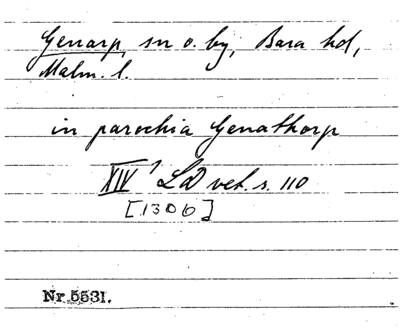 Genarp, sn o. by, Bara hd,
Malm. l.
in parochia Genathorp
XIV 1 LD vet. s. 110
[1306]
Nr 5531.